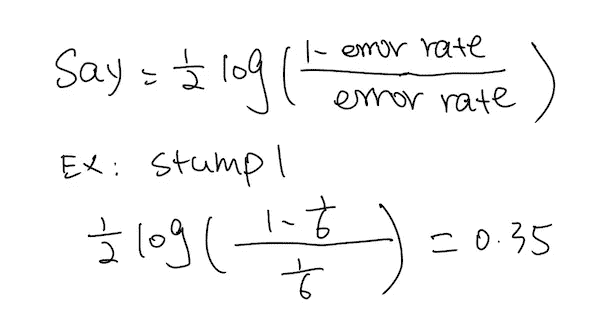 Say = 1/2 log ( (1 - error rate) / (error rate) )
Ex: stump 1
1/2 log ( (1 - 1/6) / (1/6) ) = 0.35